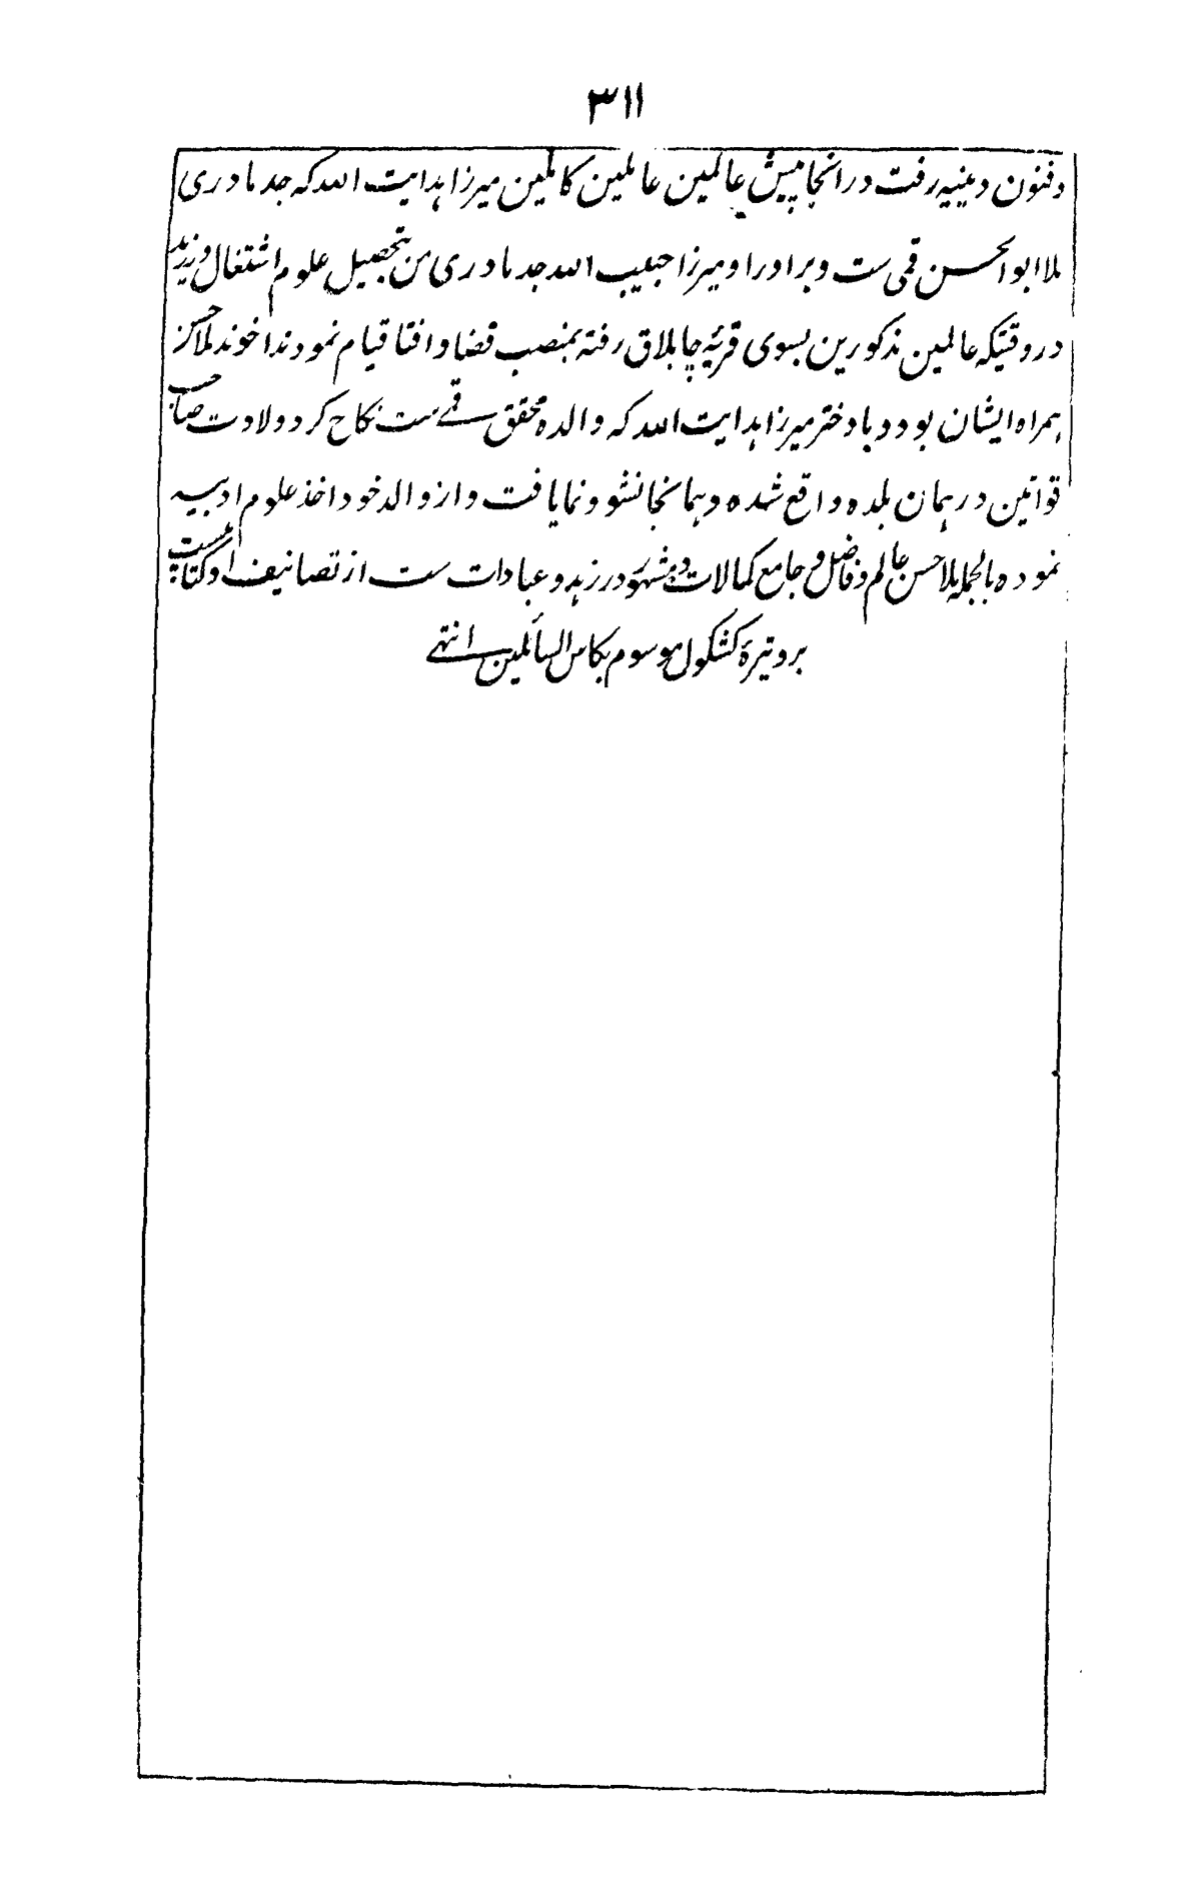 ۳۱۱
وفنون دینیه رفت در انجا پیش عالمین عاملین کاملین میرزا هدایت الله که جد مادری
ملا ابو الحسن قمی ست و برادر او میرزا حبیب الله جد مادری من بتحصیل علوم اشتغال ورزید
در وقتیکه عالمین مذکورین بسوی قریهٔ چاپلاق رفته بمنصب قضا و افتا قیام نمودند اخوند ملا حسن
همراه ایشان بود و با دختر میرزا هدایت الله که والده محقق قمے ست نکاح کرد و ولادت صاحب
قوانین در همان بلده واقع شده و همانجا نشو و نما یافت و از والد خود اخذ علوم ادبیه
نموده بالجمله ملا حسن عالم و فاضل و جامع کمالات و مشهور در زهد و عبادات ست از تصانیف او کتابیست
بر وتیرهٔ کشکول موسوم بکاس السائلین انتهے